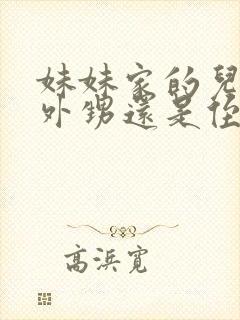 妹妹家的兒
外甥還是侄
高浜寬